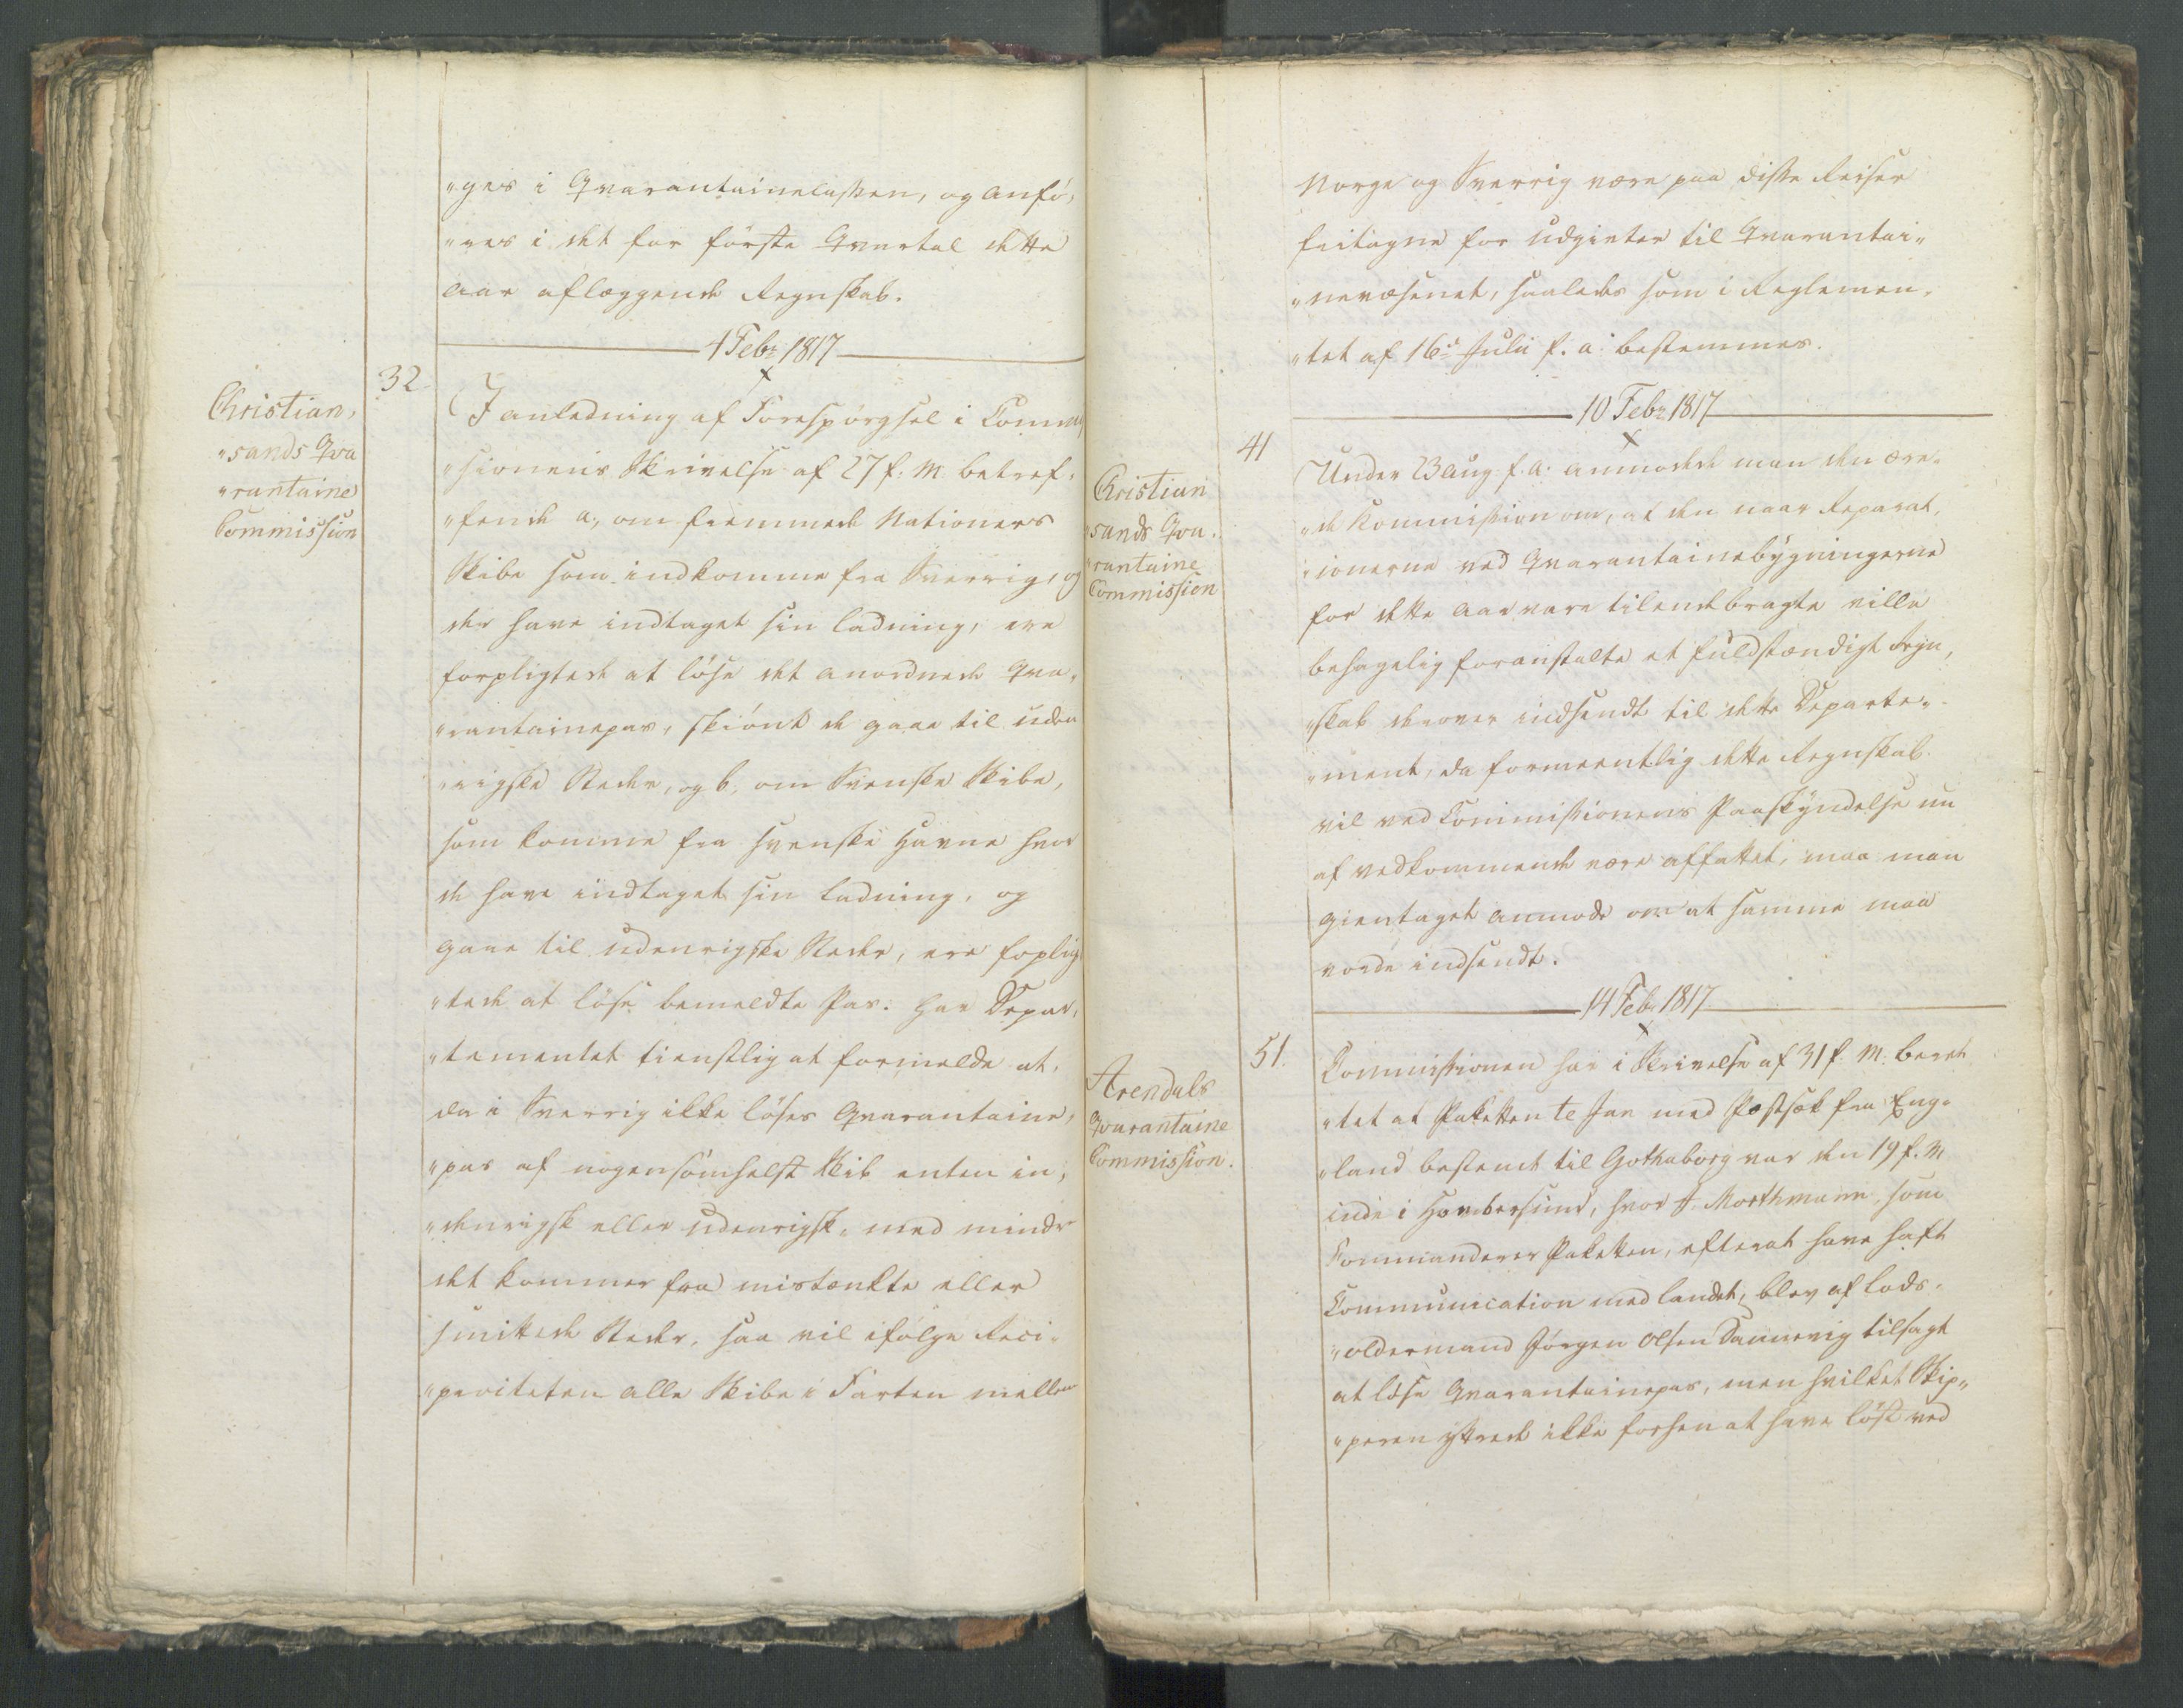 "ges i Qvarantainekassen, og anfö„
"res i det for förste Qvartal dette
Aar aflæggende Regnskab.
4 Febr 1817
32
Christian„
"sands Qva
"rantaine
Commission
I anledning af Forespörgsel i Commis
"sionens Skrivelse af 27 f: M: betref„
"fende a, om fremmede Nationers
Skibe som indkomme fra Sverrig, og
der have indtaget sin Ladning, ere
forpligtede at löse det anordnede Qva„
"rantainepas, skiönt de gaae til uden
"rigske Steder, og b, om Svenske Skibe,
som komme fra svenske Havne hvor
de have indtaget sin Ladning, og
gaae til udenrigske Steder, ere foplig
"tede at löse bemeldte Pas: har Depar„
"tementet tienstlig at formelde at,
da i Sverrig ikke löses Qvarantaine„
"pas af nogensomhelst Skib enten in„
"denrigsk eller udenrigsk, med mindre
det kommer fra mistænkte eller
smittede Steder, saa vil ifölge Reci„
"prociteten alle Skibe i Farten mellem
Norge og Sverrig være paa disse Reiser
fritagne for Udgivter til Qvarantai„
"nevæsenet, saaledes som i Reglemen„
"tet af 16de Julii f. a: bestemmes.
10 Febr 1817
41
Christian
"sands Qva„
"rantaine
Commission
Under 23 Aug f. a: anmodede man den ære„
"de Kommission om, at den naar Reparat„
"ionerne ved Qvarantainebygningerne
for dette Aar vare tilendebragte ville
behagelig foranstalte et fuldstændigt Regn„
"skab derover indsendt til dette Departe„
"ment, da formeentlig dette Regnskab
vil ved Commissionens Paaskyndelse nu
af vedkommende være affattet, maa man
gientaget anmode om at samme maa
vorde indsendt.
14 Febr 1817
51.
Arendals
Qvarantaine
Commission.
Commissionen har i Skrivelse af 31 f. M. beret
"tet at Paketten te Jan med Postsæk fra Eng„
"land bestemt til Gothaborg var den 19 f. M
inde i Hombersund, hvor J. Morthmann, som
Commanderer Paketten, efterat have haft
Communication med Landet, blev af Lods„
"oldermand Jörgen Olsen Dannevig tilsagt
at löse Qvarantainepas, men hvilket Skip„
"peren yttrede ikke forhen at have löst ved